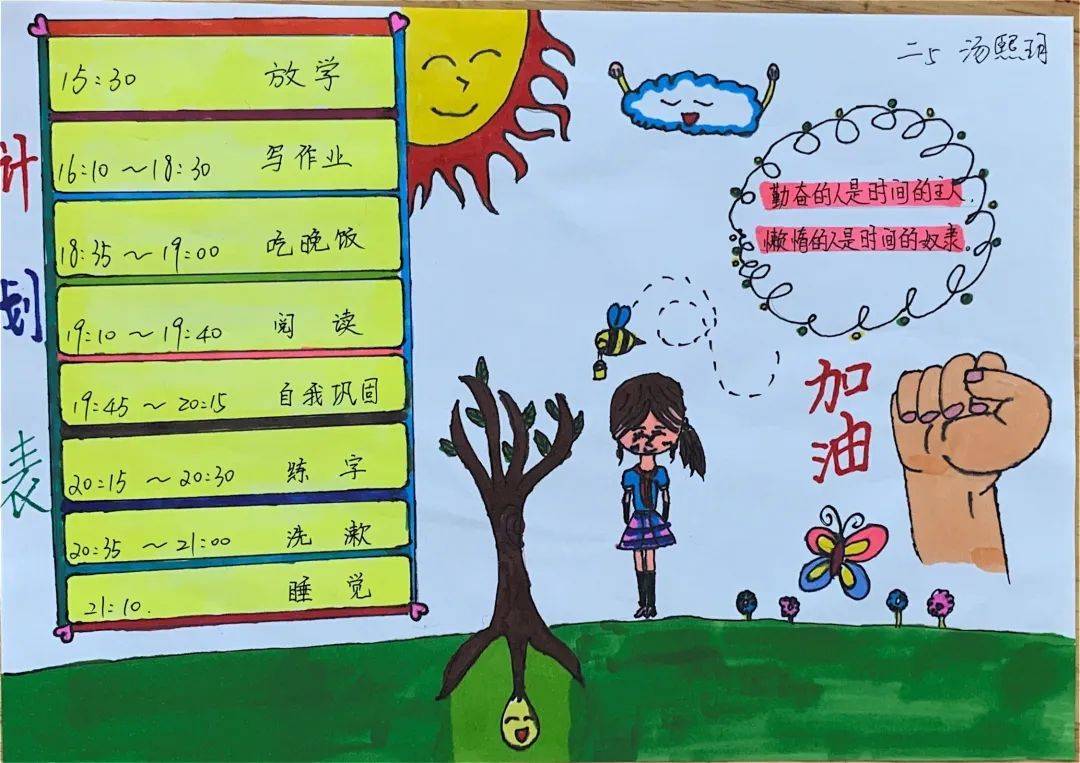 计划表
15:30 放学
16:10～18:30 写作业
18:35～19:00 吃晚饭
19:10～19:40 阅读
19:45～20:15 自我巩固
20:15～20:30 练字
20:35～21:00 洗漱
21:10. 睡觉
二5 汤熙玥
勤奋的人是时间的主人,
懒惰的人是时间的奴隶。
加油